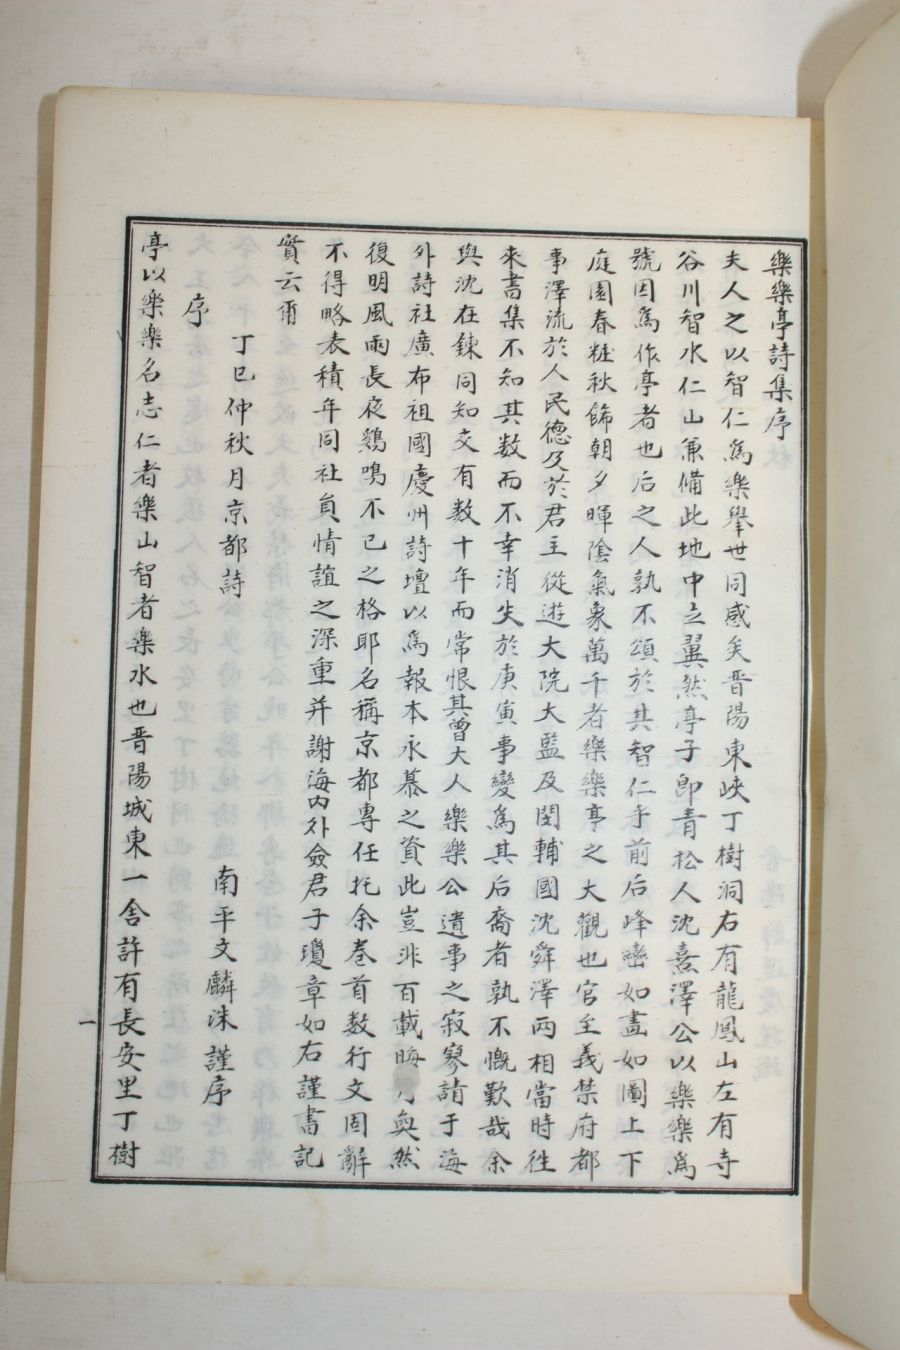 樂樂亭詩集序
夫人之以智仁爲樂擧世同感矣晋陽東峽丁樹洞右有龍鳳山左有寺
谷川智水仁山兼備此地中立翼然亭子卽靑松人沈熹澤公以樂樂爲
號因爲作亭者也后之人孰不頌於其智仁乎前后峰巒如畵如圖上下
庭園春粧秋飾朝夕暉陰氣象萬千者樂樂亭之大觀也官至義禁府都
事澤流於人民德及於君主從遊大院大監及閔輔國沈舜澤兩相當時徃
來書集不知其數而不幸消失於庚寅事變爲其后裔者孰不慨歎哉余
與沈在鍊同知交有数十年而常恨其曾大人樂樂公遺事之寂寥請于海
外詩社廣布祖國慶州詩壇以爲報本永慕之資此豈非百載晦奐然
復明風雨長夜鷄鳴不已之格耶名稱京都專任托余卷首数行文固辭
不得略表積年同社員情誼之深重幷謝海內外僉君子瓊章如右謹書記
實云爾
丁巳仲秋月京都詩 南平文麟洙謹序
序
亭以樂樂名志仁者樂山智者樂水也晋陽城東一舍許有長安里丁樹
一